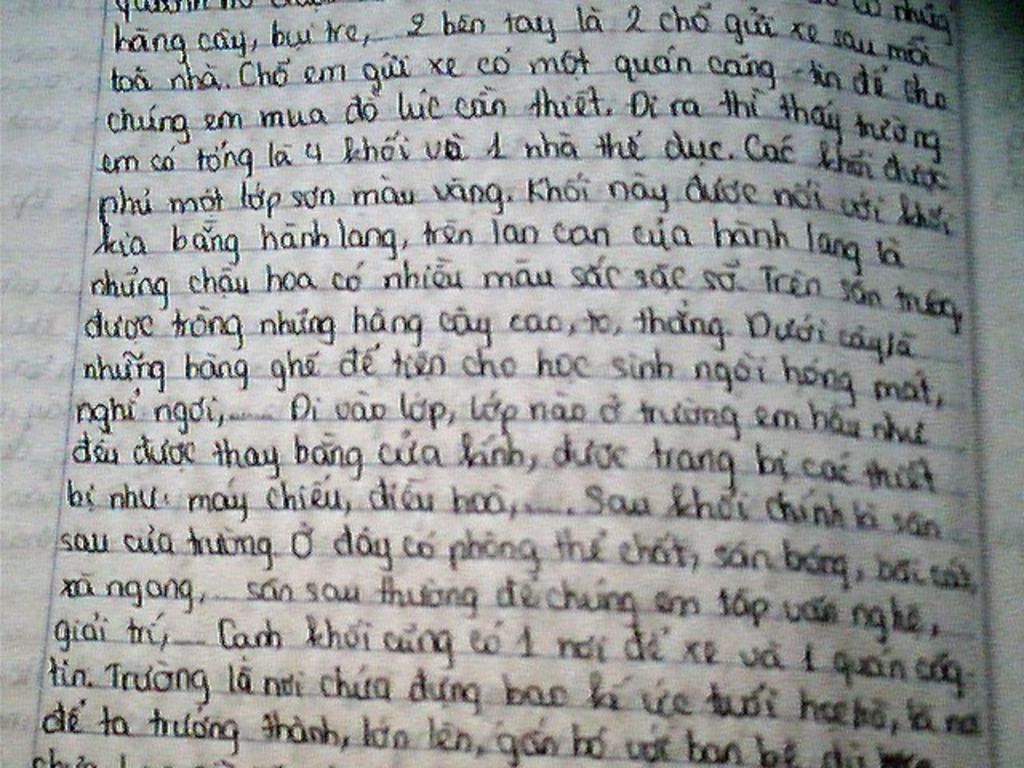 những
hàng cây, bụi tre,... 2 bên tay là 2 chỗ gửi xe sau mỗi
toà nhà. Chỗ em gửi xe có một quán căng-tin để cho
chúng em mua đồ lúc cần thiết. Đi ra thì thấy trường
em có tổng là 4 khối và 1 nhà thể dục. Các khối được
phủ một lớp sơn màu vàng. Khối này được nối với khối
kia bằng hành lang, trên lan can của hành lang là
những chậu hoa có nhiều màu sắc sặc sỡ. Trên sân trường
được trồng những hàng cây cao, to, thẳng. Dưới cây là
những hàng ghế để tiện cho học sinh ngồi hóng mát,
nghỉ ngơi,..... Đi vào lớp, lớp nào ở trường em hầu như
đều được thay bằng cửa kính, được trang bị các thiết
bị như: máy chiếu, điều hoà,..... Sau khối chính là sân
sau của trường. Ở đây có phòng thể chất, sân bóng,
xà ngang,... sân sau thường để chúng em tập văn nghệ,
giải trí,... Cạnh khối cũng có 1 nơi để xe và 1 quán căng-
tin. Trường là nơi chứa đựng bao kí ức tuổi học trò, là nơi
để ta trưởng thành, lớn lên, gắn bó với bạn bè,